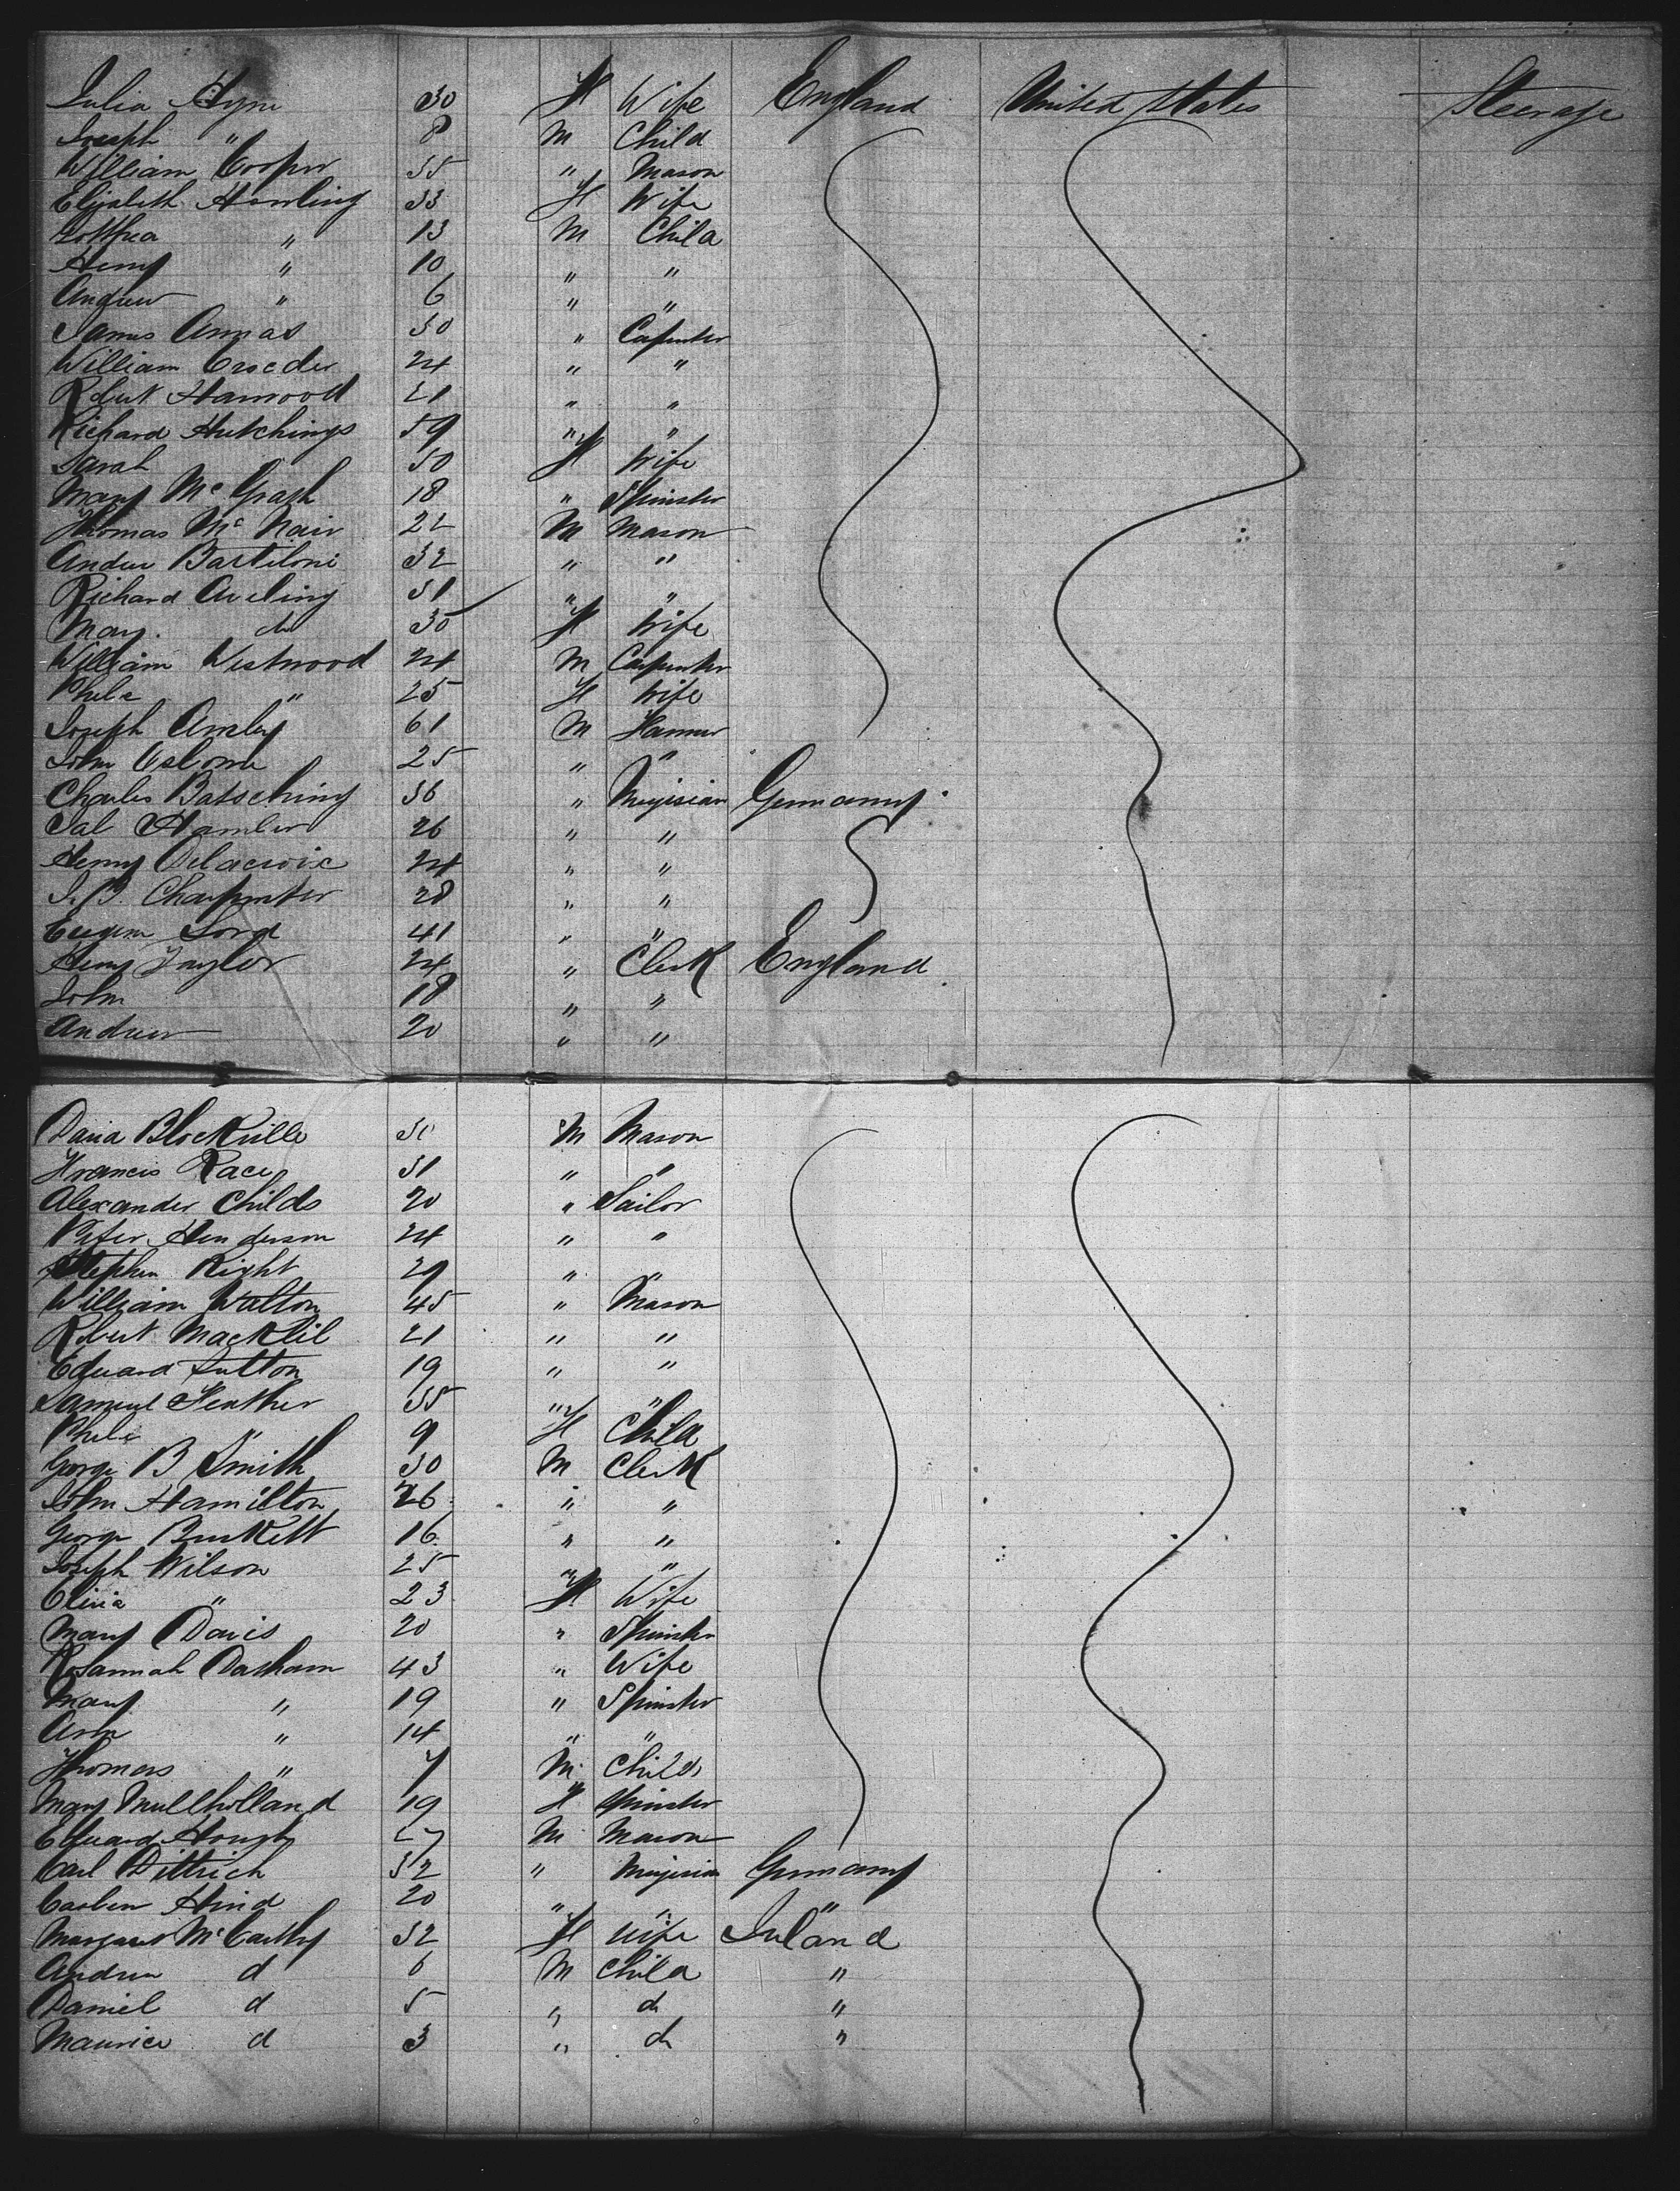 Julia Hyne 30 F Wife England United States Steerage
Joseph " 8 M Child
William Cooper 35 " Mason
Elizabeth Hawling 33 F Wife
13 M Child
Henry " 10 " "
Andrew " 6 " "
James Annas 30 " Carpenter
William Croeder 24 " "
Robert Harwood 21 " "
Richard Hutchings 59 " "
Sarah 50 F Wife
Mary Mc Grash 18 " Spinster
Thomas Mc Nair 22 M Mason
Andew Bartiloni 32 " "
Richard Aveling 31 " "
Mary do 30 F Wife
William Westwood 24 M Carpenter
Phebe " 25 F Wife
Joseph Amsley 61 M Farmer
John Osborne 25 " "
Charles Batsching 36 " Musisian Germany
Sal Hamler 26 " "
Henry Delacroix 24 " "
J. B. Charpenter 28 " "
Eugene Lord 41 " "
Henry Taylor 24 " Clerk England
John 18 " "
Andrew 20 " "
David Blockville 30 M Mason
Francis Race 31 " "
Alexander Childs 20 " Sailor
Peter Henderson 24 " "
Stephen Right 29 " "
William Walton 45 " Mason
Robert Macklil 21 " "
Edward Sutton 19 " "
Samuel Feather 35 " "
Phebe " 9 F Child
George B Smith 30 M Clerk
John Hamilton 26 " "
George Burkett 16 " "
Joseph Wilson 25 " "
Olivia " 23 F Wife
Mary Davis 20 " Spinster
Rosannah Dasham 43 " Wife
Mary " 19 " Spinster
Ann " 14 " "
Thomas " 7 M Child
Mary Mullholland 19 F Spinster
Edward Hough 27 M Mason
Carl Dittrich 32 " Musisian Germany
Carben Hind 20 " " "
Margaret McCarthy 32 F Wife Ireland
Andrew d 6 M Child "
Daniel d 5 " do "
Maurice d 3 " do "